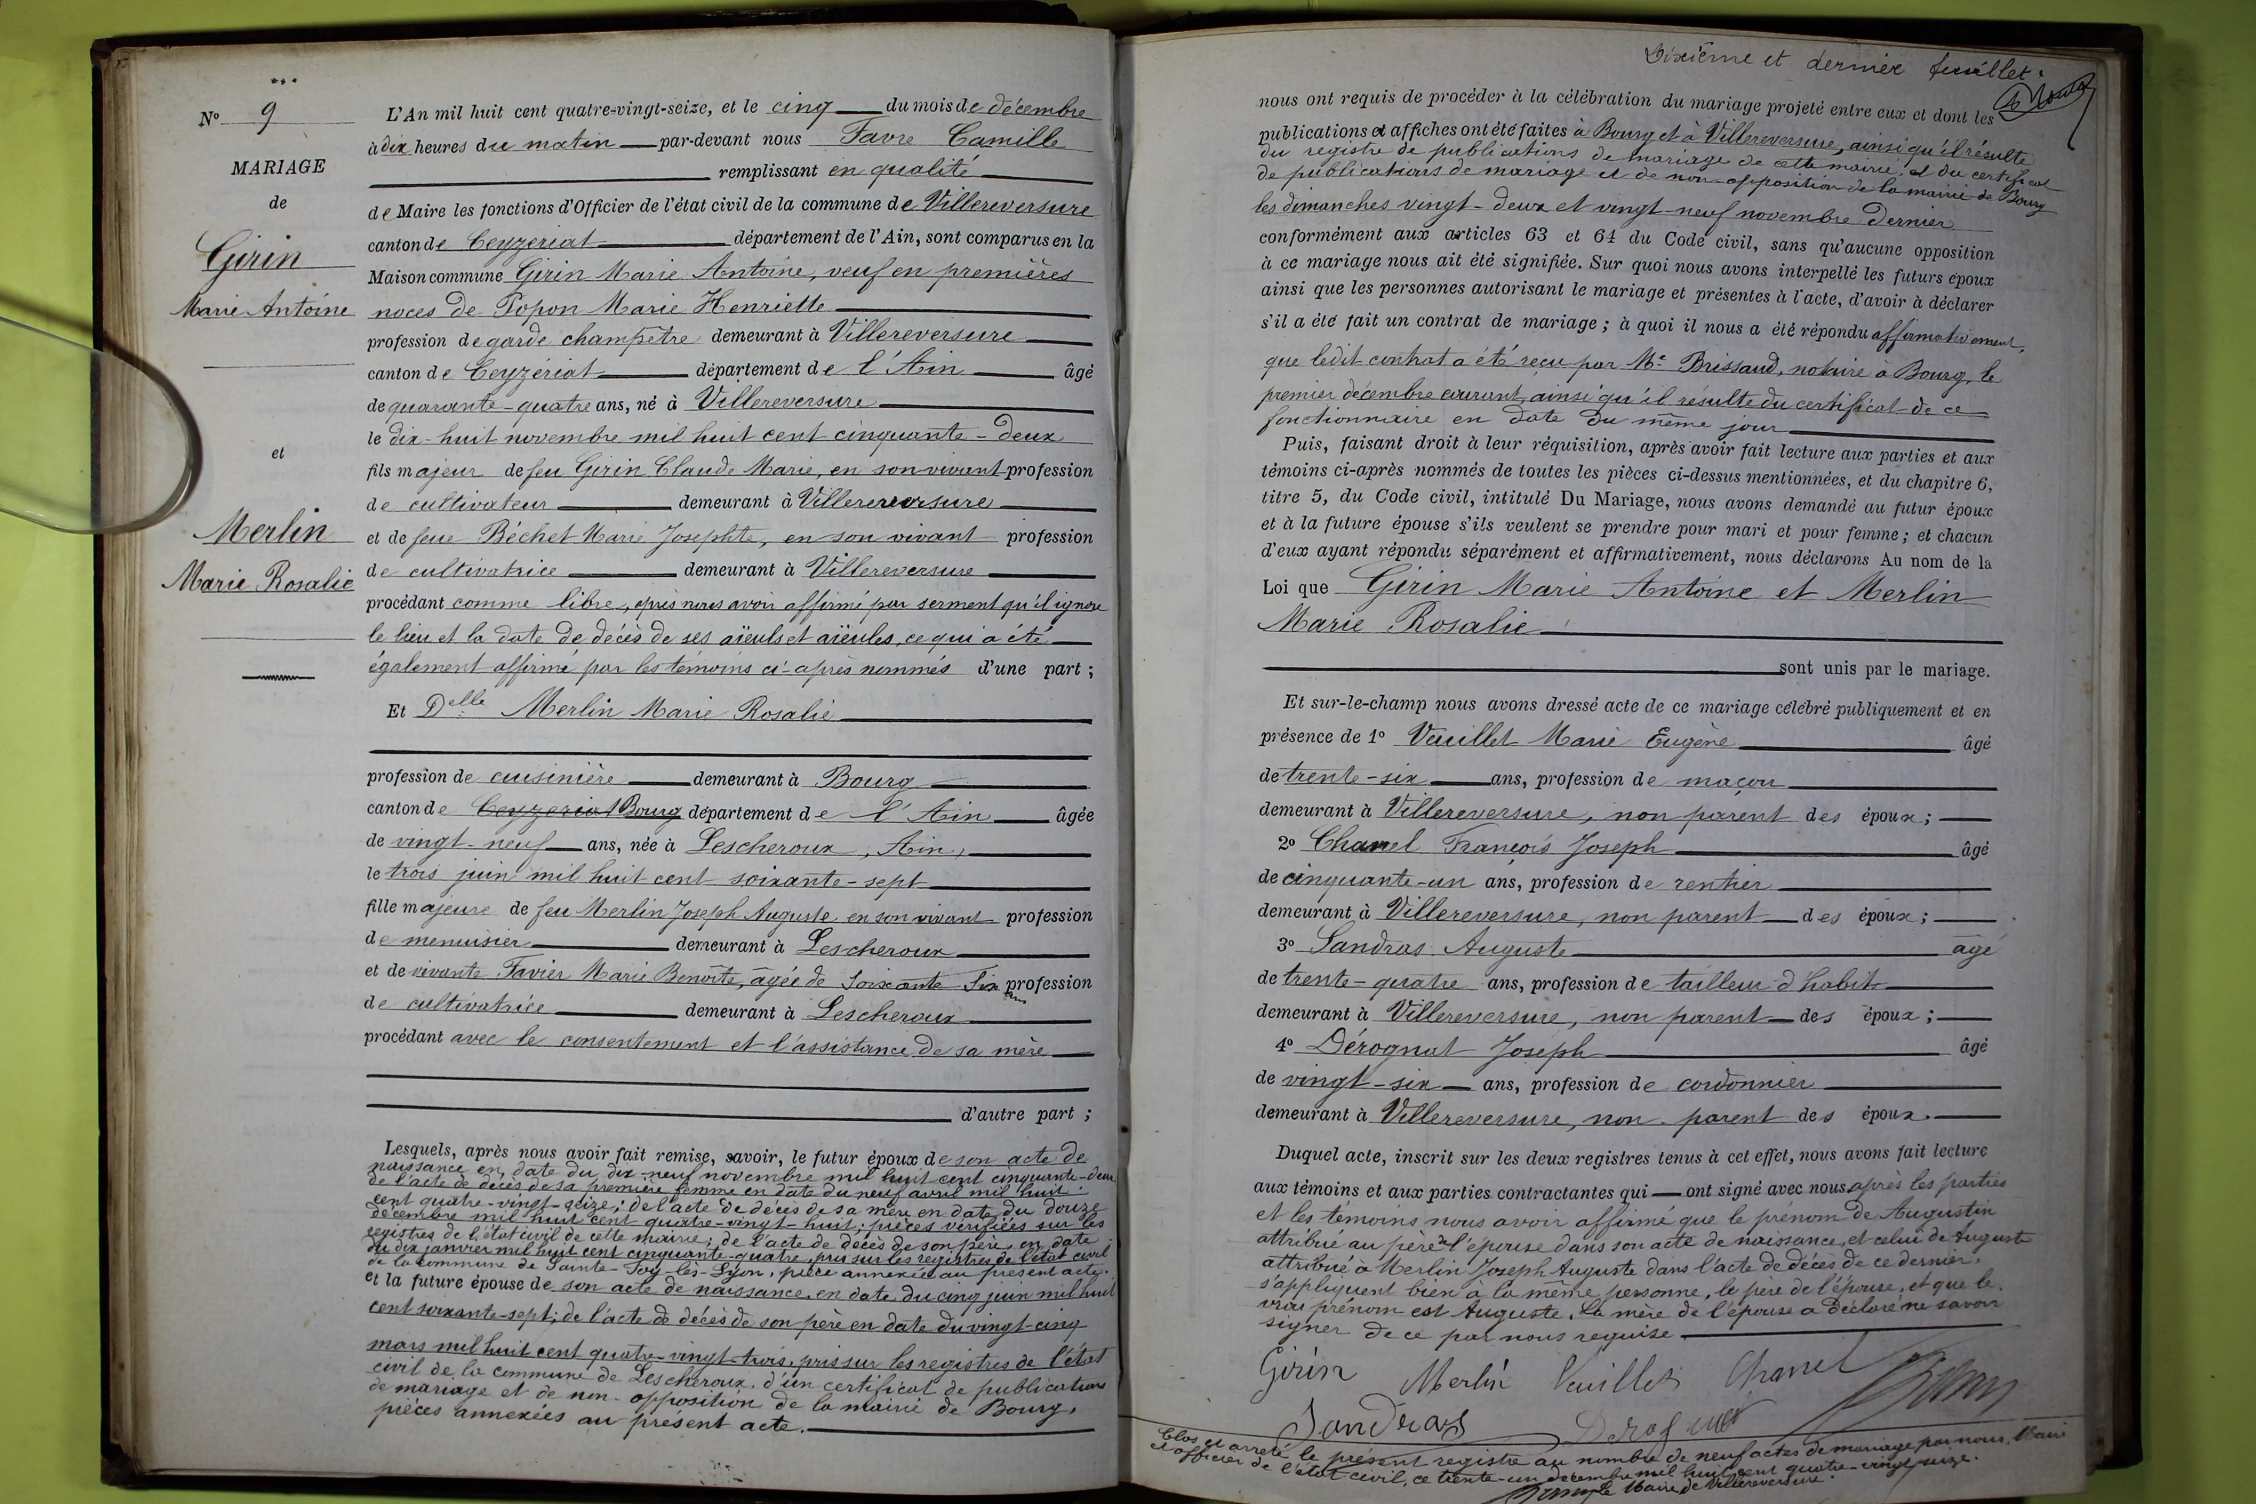 Nº 9
MARIAGE
de
Girin
Marie Antoine
et
Merlin
Marie Rosalie
L'An mil huit cent quatre-vingt-seize, et le cinq du mois de décembre
à dix heures du matin par-devant nous Favre Camille
remplissant en qualité
de Maire les fonctions d'Officier de l'état civil de la commune de Villereversure
canton de Ceyzeriat département de l'Ain, sont comparus en la
Maison commune Girin Marie Antoine, veuf en premières
noces de Popon Marie Henriette
profession de garde champêtre demeurant à Villereversure
canton de Ceyzériat département de l'Ain âgé
de quarante-quatre ans, né à Villereversure
le dix-huit novembre mil huit cent cinquante-deux
fils majeur de feu Girin Claude Marie, en son vivant profession
de cultivateur demeurant à Villereversure
et de feue Béchet Marie Josephte, en son vivant profession
de cultivatrice demeurant à Villereversure
procédant comme libre, après nous avoir affirmé par serment qu'il ignore
le lieu et la date de décès de ses aïeuls et aïeules, ce qui a été
également affirmé par les témoins ci-après nommés d'une part ;
Et Delle Merlin Marie Rosalie
profession de cuisinière demeurant à Bourg
canton de Ceyzeriat Bourg département de l'Ain âgée
de vingt-neuf ans, née à Lescheroux, Ain,
le trois juin mil huit cent soixante-sept
fille majeure de feu Merlin Joseph Auguste en son vivant profession
de menuisier demeurant à Lescheroux
et de vivante Favier Marie Benoîte, âgée de soixante six ans profession
de cultivatrice demeurant à Lescheroux
procédant avec le consentement et l'assistance de sa mère
d'autre part ;
Lesquels, après nous avoir fait remise, savoir, le futur époux de son acte de
naissance en date du dix-neuf novembre mil huit cent cinquante-deux
de l'acte de décès de sa première femme en date du neuf avril mil huit
cent quatre-vingt-seize ; de l'acte de décès de sa mère en date du douze
décembre mil huit cent quatre-vingt-huit ; pièces vérifiées sur les
registres de l'état civil de cette mairie ; de l'acte de décès de son père en date
du dix janvier mil huit cent cinquante-quatre, pris sur les registres de l'état civil
de la commune de Sainte-Foy-lès-Lyon, pièce annexée au présent acte.
et la future épouse de son acte de naissance, en date du cinq juin mil huit
cent soixante-sept ; de l'acte de décès de son père en date du vingt-cinq
mars mil huit cent quatre-vingt-trois, pris sur les registres de l'état
civil de la commune de Lescheroux, d'un certificat de publications
de mariage et de non-opposition de la mairie de Bourg,
pièces annexées au présent acte.
Dixième et dernier feuillet.
nous ont requis de procéder à la célébration du mariage projeté entre eux et dont les
publications et affiches ont été faites à Bourg et à Villereversure, ainsi qu'il résulte
du registre de publications de mariage de cette mairie, et du certificat
de publications de mariage et de non-opposition de la mairie de Bourg
les dimanches vingt-deux et vingt-neuf novembre dernier
conformément aux articles 63 et 64 du Code civil, sans qu'aucune opposition
à ce mariage nous ait été signifiée. Sur quoi nous avons interpellé les futurs époux
ainsi que les personnes autorisant le mariage et présentes à l'acte, d'avoir à déclarer
s'il a été fait un contrat de mariage ; à quoi il nous a été répondu affirmativement,
que ledit contrat a été reçu par Me Brissaud, notaire à Bourg, le
premier décembre courant, ainsi qu'il résulte du certificat de ce
fonctionnaire en date du même jour
Puis, faisant droit à leur réquisition, après avoir fait lecture aux parties et aux
témoins ci-après nommés de toutes les pièces ci-dessus mentionnées, et du chapitre 6,
titre 5, du Code civil, intitulé Du Mariage, nous avons demandé au futur époux
et à la future épouse s'ils veulent se prendre pour mari et pour femme ; et chacun
d'eux ayant répondu séparément et affirmativement, nous déclarons Au nom de la
Loi que Girin Marie Antoine et Merlin
Marie Rosalie
sont unis par le mariage.
Et sur-le-champ nous avons dressé acte de ce mariage célébré publiquement et en
présence de 1º Vuillet Marie Eugène âgé
de trente-six ans, profession de maçon
demeurant à Villereversure, non parent des époux ;
2º Chanel François Joseph âgé
de cinquante-un ans, profession de rentier
demeurant à Villereversure, non parent des époux ;
3º Sandras Auguste âgé
de trente-quatre ans, profession de tailleur d'habit
demeurant à Villereversure, non parent des époux ;
4º Dérognat Joseph âgé
de vingt-six ans, profession de cordonnier
demeurant à Villereversure, non parent des époux.
Duquel acte, inscrit sur les deux registres tenus à cet effet, nous avons fait lecture
aux témoins et aux parties contractantes qui ont signé avec nous après les parties
et les témoins nous avoir affirmé que le prénom de Augustin
attribué au père de l'épouse dans son acte de naissance, et celui de Auguste
attribué à Merlin Joseph Auguste dans l'acte de décès de ce dernier,
s'appliquent bien à la même personne, le père de l'épouse, et que le
vrai prénom est Auguste. La mère de l'épouse a déclaré ne savoir
signer de ce par nous requise
Girin Merlin Vuillet Chanel
Sandras Derognat
Clos et arrêté le présent registre au nombre de neuf actes de mariage par nous, Maire
et officier de l'état civil, ce trente-un décembre mil huit cent quatre-vingt seize.
Le Maire de Villereversure